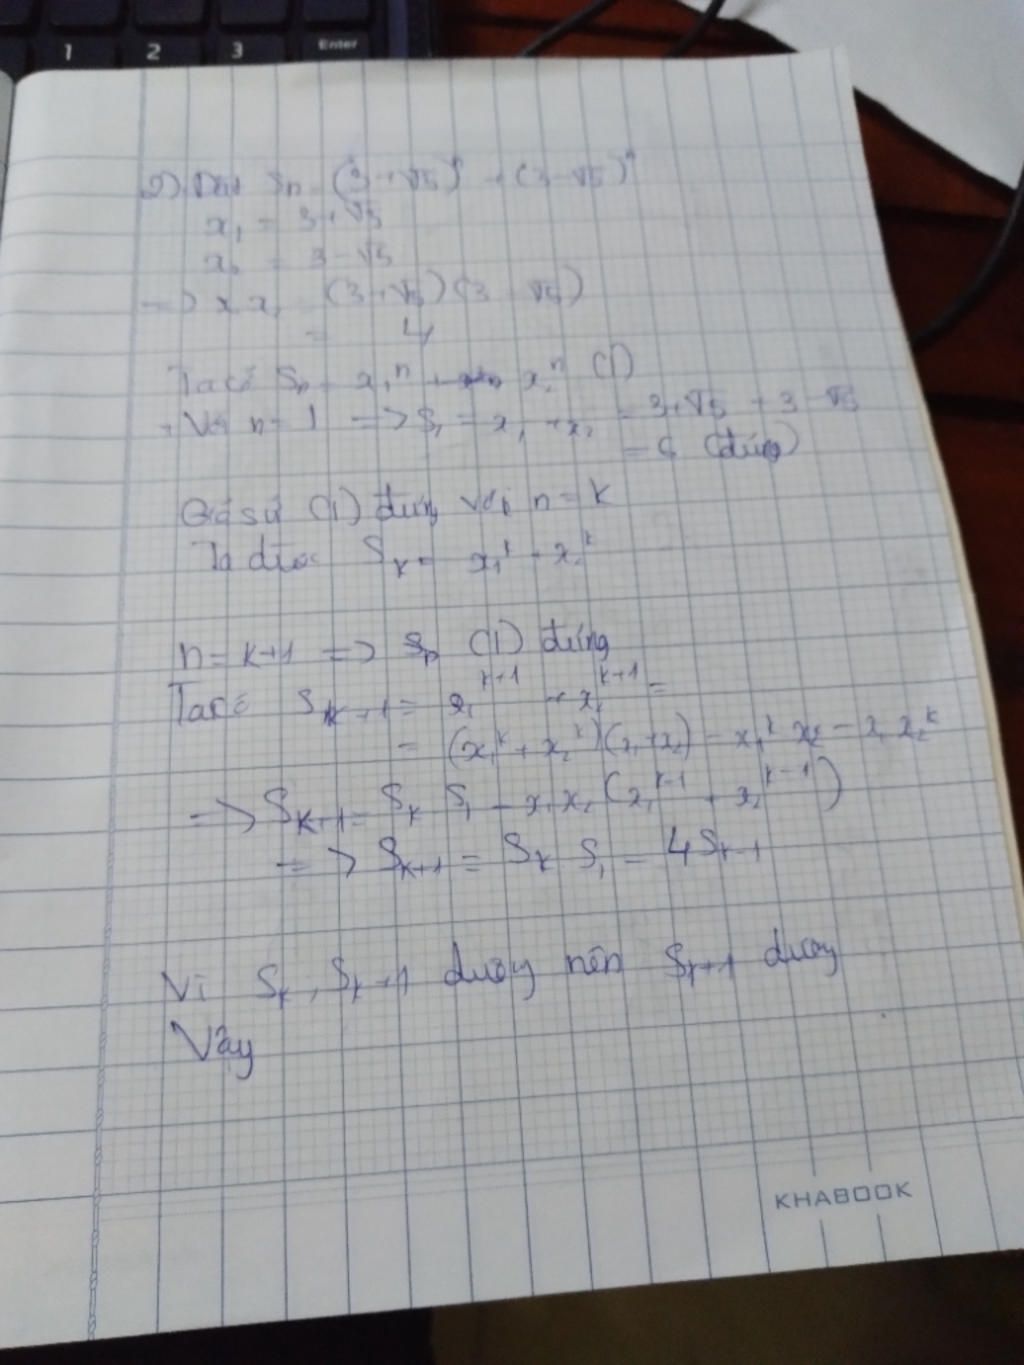 1 2 3 Enter
2) Đặt Sn = (3+√5)^n + (3-√5)^n
x₁ = 3+√5
x₂ = 3-√5
=> x₁x₂ = (3+√5)(3-√5)
= 4
Ta có Sn = x₁^n + x₂^n (1)
+ Với n=1 => S₁ = x₁ + x₂ = 3+√5 + 3-√5
= 6 (đúng)
Giả sử (1) đúng với n = k
Ta được Sk = x₁^k + x₂^k
n = k+1 => Sn (1) đúng
Ta có Sk+1 = x₁^k+1 + x₂^k+1 =
= (x₁^k + x₂^k)(x₁+x₂) - x₁^k x₂ - x₁ x₂^k
=> Sk+1 = Sk S₁ - x₁x₂ (x₁^k-1 + x₂^k-1)
=> Sk+1 = Sk S₁ - 4Sk-1
Vì Sk, Sk+1 dương nên Sk+1 dương
Vậy
KHABOOK